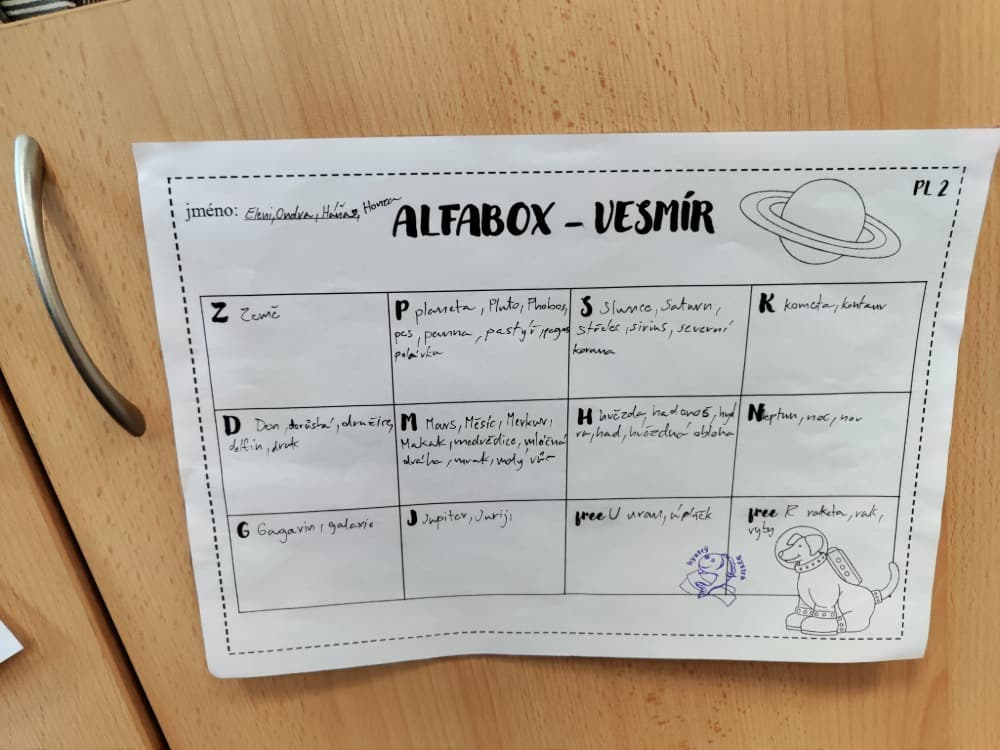 PL 2
jméno: Eleni, Ondra,
ALFABOX – VESMÍR
Z Země
P planeta, Pluto, Phobos,
pes, panna, pastýř,
polévka
S Slunce, Saturn,
střelec, sirius, severní
koruna
K kometa, kentaur
D Den, družice,
delfín, drak
M Mars, Měsíc, Merkur,
Makak, medvědice, mléčná
dráha, mrak, malý vůz
H hvězda, hadonoš, hyd
ra, had, hvězdná obloha
Neptun, noc, nov
G Gagarin, galaxie
J Jupiter, Jurij
free U uran, úplněk
free R raketa, rak,
ryby
bystrý